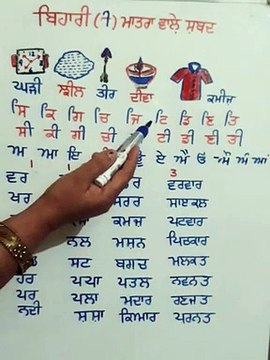 ਬਿਹਾਰੀ (ੀ) ਮਾਤਰਾ ਵਾਲੇ ਸ਼ਬਦ
ਘੜੀ ਝੀਲ ਤੀਰ ਦੀਵਾ ਕਮੀਜ਼
ਸਿ ਕਿ ਗਿ ਚਿ ਜਿ ਟਿ ਡਿ ਣਿ ਤਿ
ਸੀ ਕੀ ਗੀ ਚੀ ਟੀ ਡੀ ਣੀ ਤੀ
ਅ ਆ ਇ ਏ ਐ ਓ ਔ ਅੰ ਆਂ
1 3
ਵਰ ਸਰਰ ਵਰਦਾਰ
ਖਰ ਸਰਰ ਸਾਈਕਲ
ਕਮਜ਼ ਪਟਵਾਰ
ਨਲ ਮਸ਼ਨ ਪਿਚਕਾਰ
ਸਟ ਬਗਚ ਮਲਕਤ
ਹਰ ਪਪਾ ਪਤਲ ਨਵਨਤ
ਪਰ ਪਲਾ ਮਦਾਰ ਰਣਜਤ
ਨਦੀ ਸ਼ਸ਼ਾ ਕਿਆਰ ਪਰਨਤ